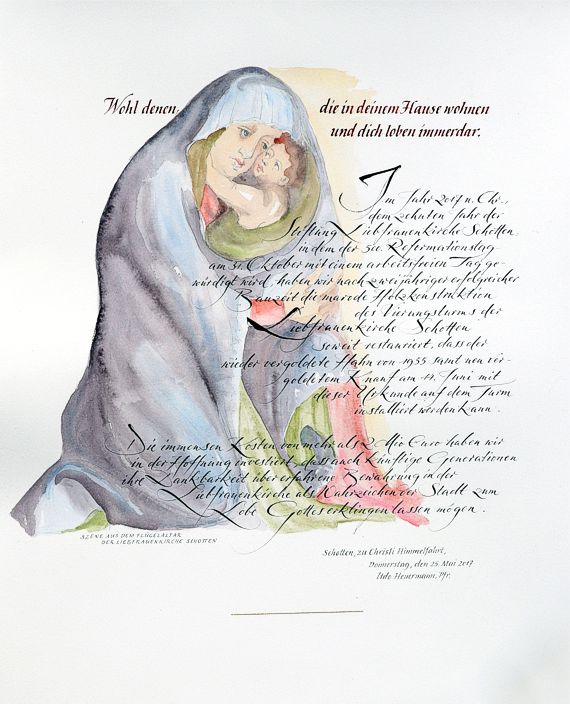 Wohl denen, die in deinem Hause wohnen
und dich loben immerdar.
Im Jahr 2017 n. Chr.,
dem zehnten Jahr der
Stiftung Liebfrauenkirche Schotten,
in dem der 500. Reformationstag
am 31. Oktober mit einem arbeitsfreien Tag ge-
würdigt wird, haben wir nach zweijähriger erfolgreicher
Bauzeit die marode Holzkonstruktion
des Vierungsturms der
Liebfrauenkirche Schotten
soweit restauriert, dass der
wieder vergoldete Hahn von 1955 samt neu ver-
goldetem Knauf am 14. Juni mit
dieser Urkunde auf dem Turm
installiert werden kann.
Die immensen Kosten von mehr als 2 Mio Euro haben wir
in der Hoffnung investiert, dass auch künftige Generationen
ihre Dankbarkeit über erfahrene Bewahrung in der
Liebfrauenkirche als Wahrzeichen der Stadt zum
Lobe Gottes erklingen lassen mögen.
SZENE AUS DEM FLÜGELALTAR
DER LIEBFRAUENKIRCHE SCHOTTEN
Schotten, zu Christi Himmelfahrt,
Donnerstag, den 25. Mai 2017
Udo Heuermann, Pfr.